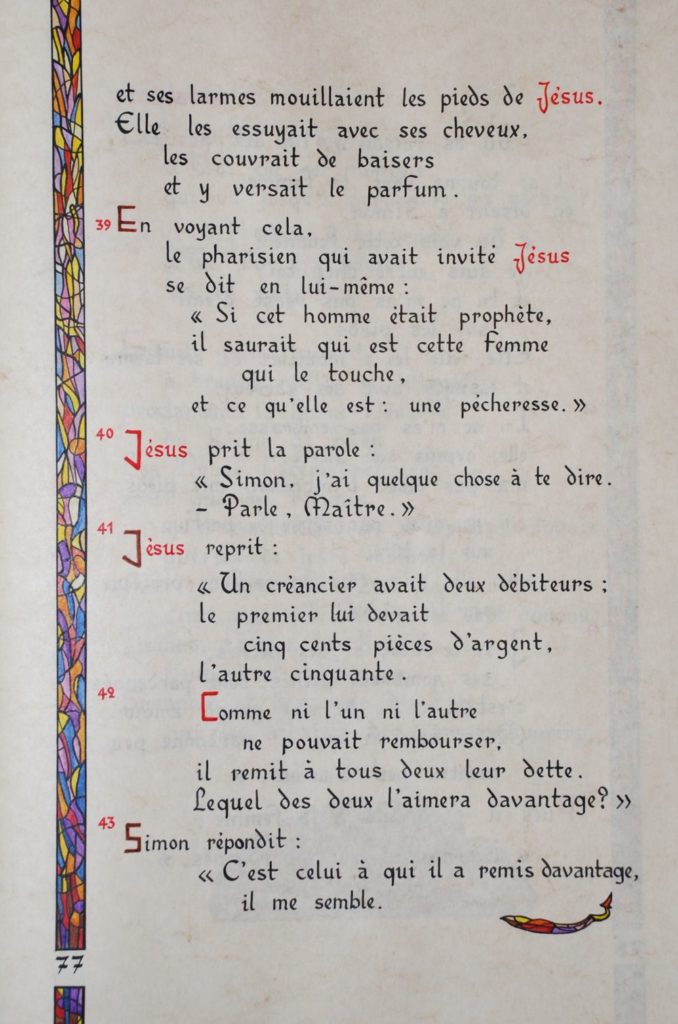 et ses larmes mouillaient les pieds de Jésus.
Elle les essuyait avec ses cheveux,
les couvrait de baisers
et y versait le parfum.
39 En voyant cela,
le pharisien qui avait invité Jésus
se dit en lui-même :
« Si cet homme était prophète,
il saurait qui est cette femme
qui le touche,
et ce qu'elle est : une pécheresse. »
40 Jésus prit la parole :
« Simon, j'ai quelque chose à te dire.
– Parle, Maître. »
41 Jésus reprit :
« Un créancier avait deux débiteurs ;
le premier lui devait
cinq cents pièces d'argent,
l'autre cinquante.
42 Comme ni l'un ni l'autre
ne pouvait rembourser,
il remit à tous deux leur dette.
Lequel des deux l'aimera davantage? »
43 Simon répondit :
« C'est celui à qui il a remis davantage,
il me semble.
77